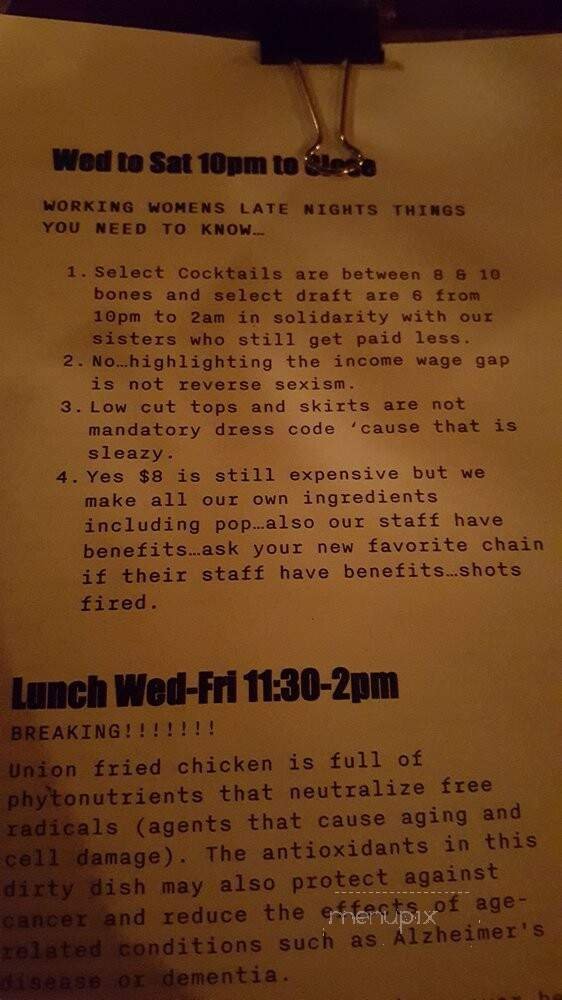 Wed to Sat 10pm to Close
WORKING WOMENS LATE NIGHTS THINGS
YOU NEED TO KNOW…
1. Select Cocktails are between 8 & 10
bones and select draft are 6 from
10pm to 2am in solidarity with our
sisters who still get paid less.
2. No…highlighting the income wage gap
is not reverse sexism.
3. Low cut tops and skirts are not
mandatory dress code ‘cause that is
sleazy.
4. Yes $8 is still expensive but we
make all our own ingredients
including pop…also our staff have
benefits…ask your new favorite chain
if their staff have benefits…shots
fired.
Lunch Wed-Fri 11:30-2pm
BREAKING!!!!!!!
Union fried chicken is full of
phytonutrients that neutralize free
radicals (agents that cause aging and
cell damage). The antioxidants in this
dirty dish may also protect against
cancer and reduce the effects of age-
menupix
related conditions such as Alzheimer's
disease or dementia.